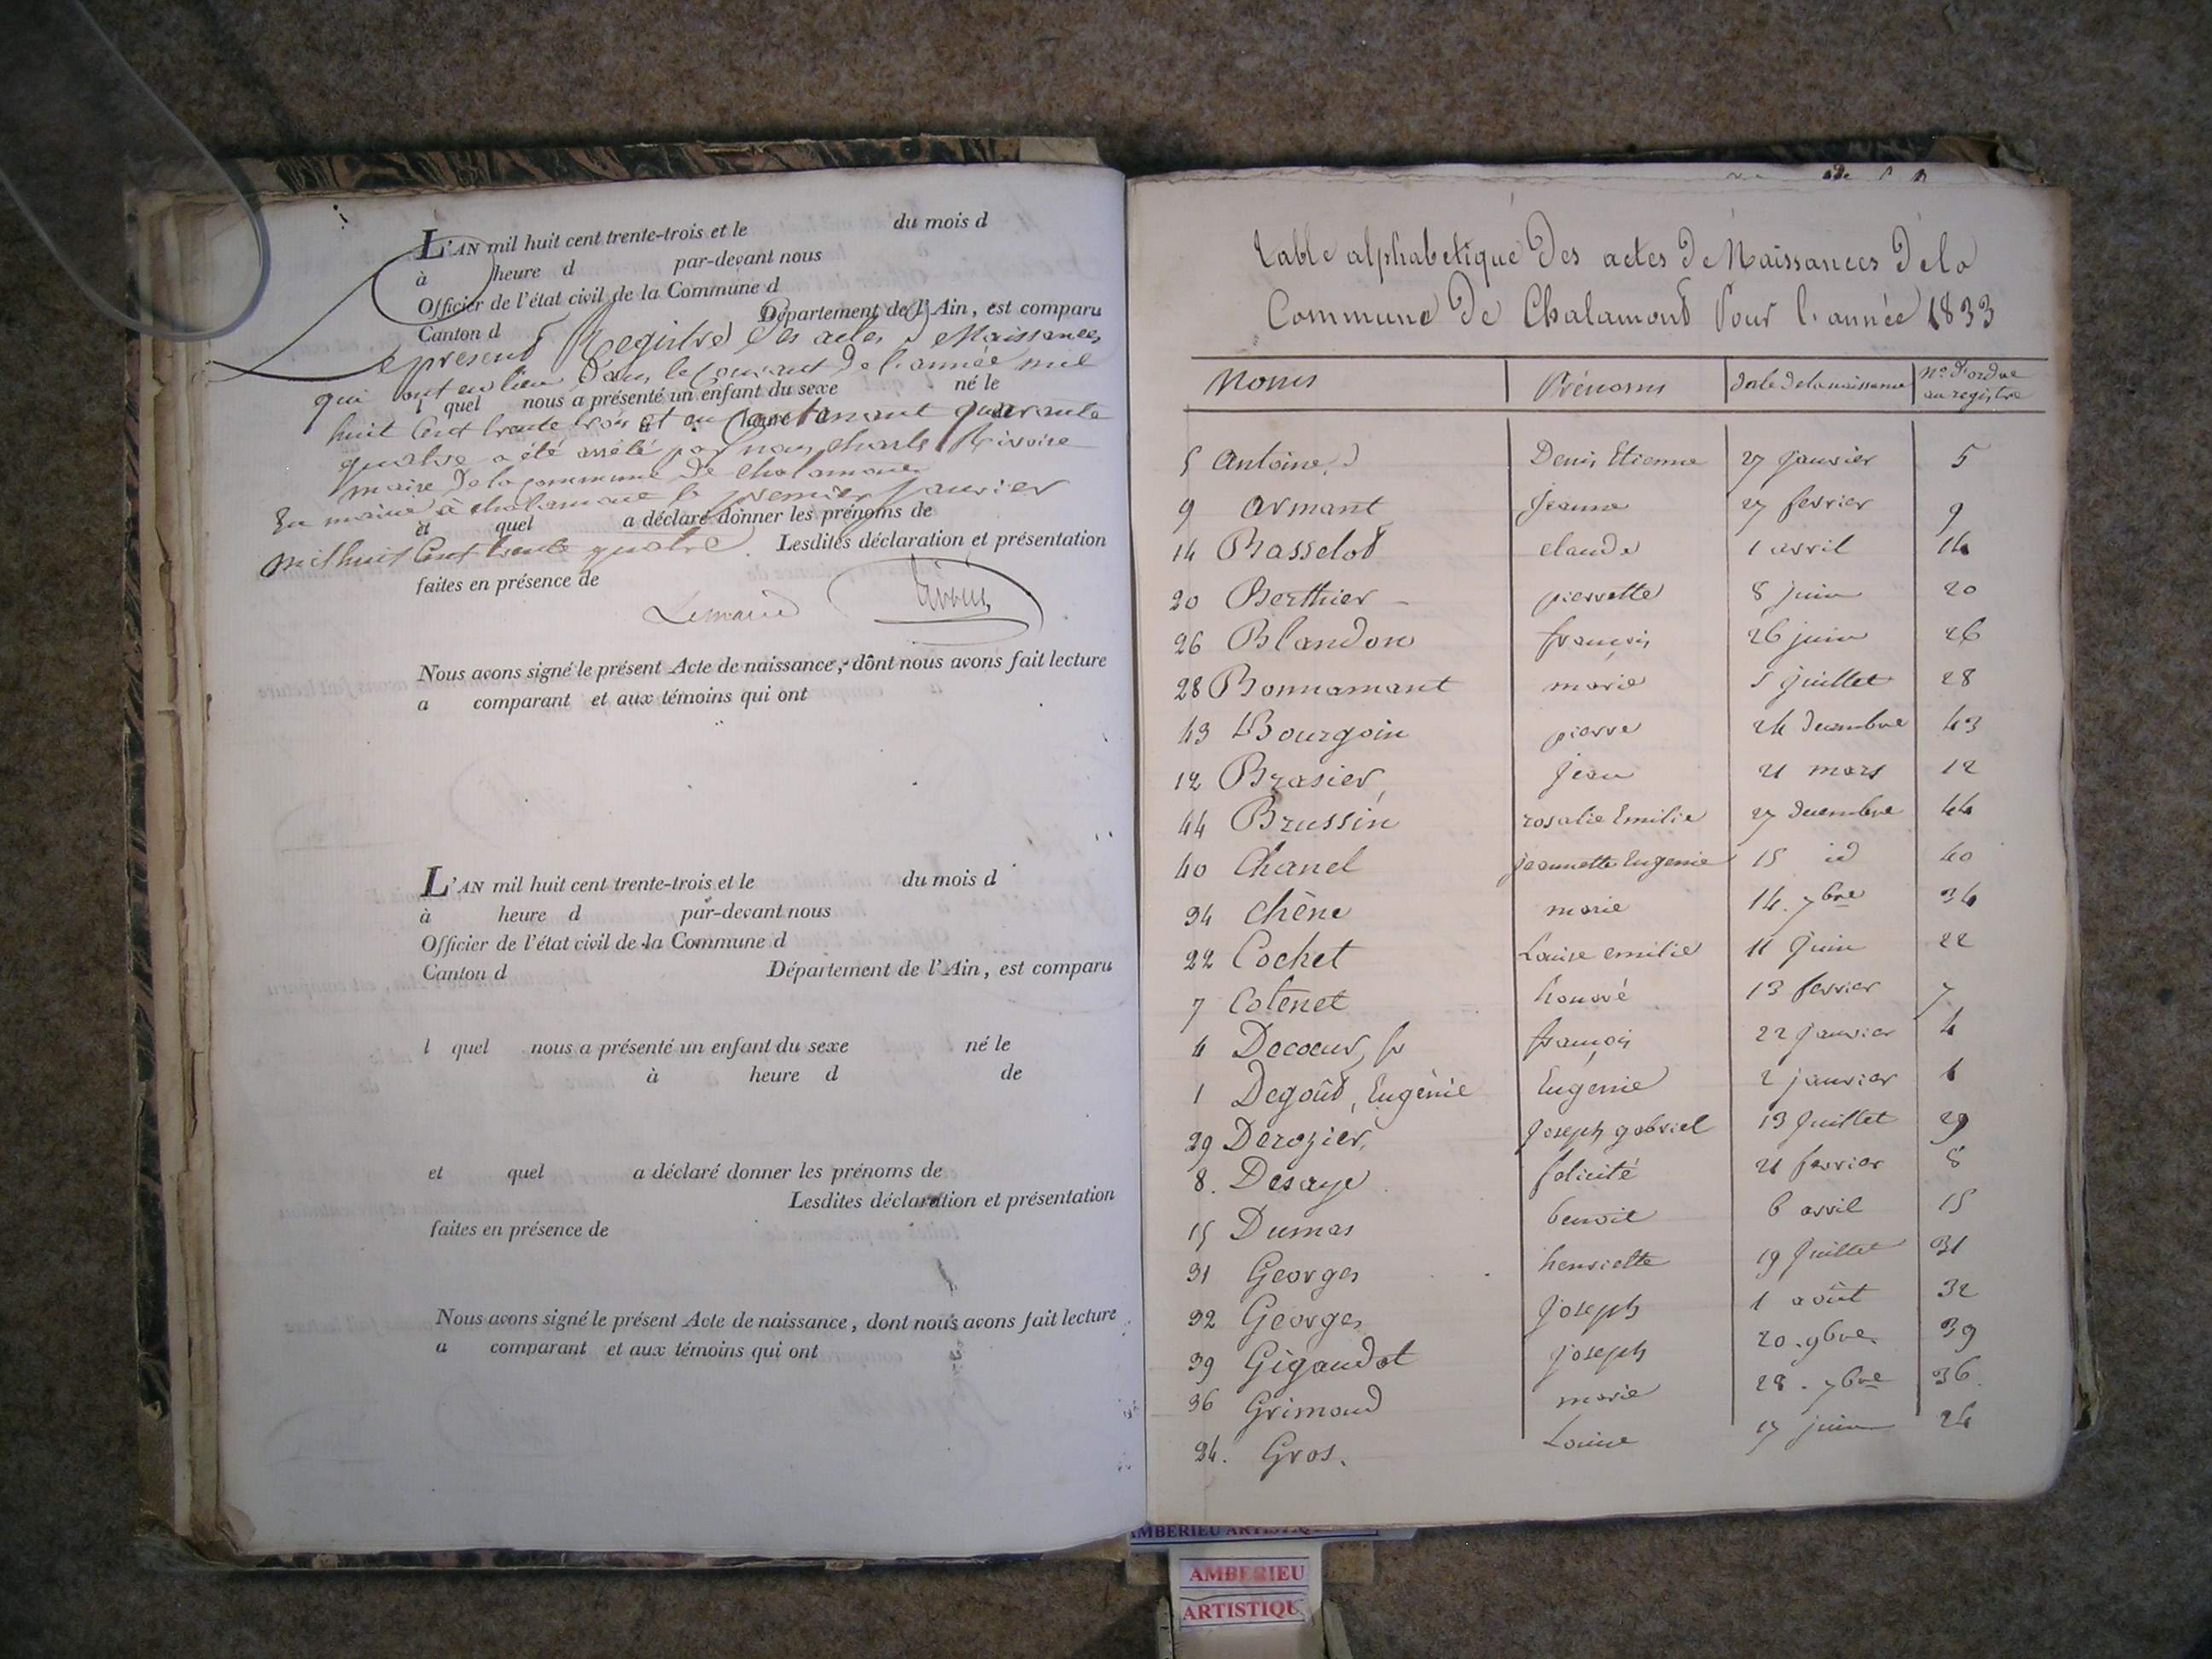 L'AN mil huit cent trente-trois et le du mois d
à heure d par-devant nous
Officier de l'état civil de la Commune d
Canton d Département de l'Ain, est comparu
e present Registre des actes de Naissances
qui ont eu lieu dans le courant de l'année mil
l quel nous a présenté un enfant du sexe né le
huit Cent trente trois et en contenant quarante
à heure d de
quatre a été arrêté par nous, Charle Rivoire
maire de la commune de Chalamont
En mairie à chalamont le premier janvier
et quel a déclaré donner les prénoms de
mil huit Cent trente quatre.
Lesdites déclaration et présentation
faites en présence de
Le maire Rivoire
Nous avons signé le présent Acte de naissance, dont nous avons fait lecture
a comparant et aux témoins qui ont
L'AN mil huit cent trente-trois et le du mois d
à heure d par-devant nous
Officier de l'état civil de la Commune d
Canton d Département de l'Ain, est comparu
l quel nous a présenté un enfant du sexe né le
à heure d de
et quel a déclaré donner les prénoms de
Lesdites déclaration et présentation
faites en présence de
Nous avons signé le présent Acte de naissance, dont nous avons fait lecture
a comparant et aux témoins qui ont
table alphabetique Des actes De Naissances De la
Commune De Chalamont Pour l'année 1833
Noms Prénoms date de la naissance n.o d'ordre au registre
5 Antoine, D Denis Etienne 27 janvier 5
9 armant jeanne 27 fevrier 9
14 Basselot claude 1 avril 14
20 Berthier pierrette 8 juin 20
26 Blandon françois 26 juin 26
28 Bonnamant marie 5 juillet 28
43 Bourgoin pierre 24 decembre 43
12 Brasier jean 21 mars 12
44 Brussin rosalie Emilie 27 decembre 44
40 Chanel jeannette Eugenie 15 id 40
34 chêne marie 14. 7bre 34
22 Cochet Louise emilie 11 juin 22
7 Cotenet honoré 13 fevrier 7
4 Decoeur, fr françois 22 janvier 4
1 Degoût, Eugénie Eugenie 2 janvier 1
29 Derozier, Joseph gabriel 13 Juillet 29
8. Desaye felicité 21 fevrier 8
15 Dumas benoit 6 avril 15
31 Georges henriette 19 juillet 31
32 Georges Joseph 1 août 32
39 Gigaudet joseph 20. 9bre 39
36 Grimaud marie 28. 7bre 36.
24. Gros. Louise 17 juin 24
AMBERIEU
AMBERIEU
ARTISTIQU